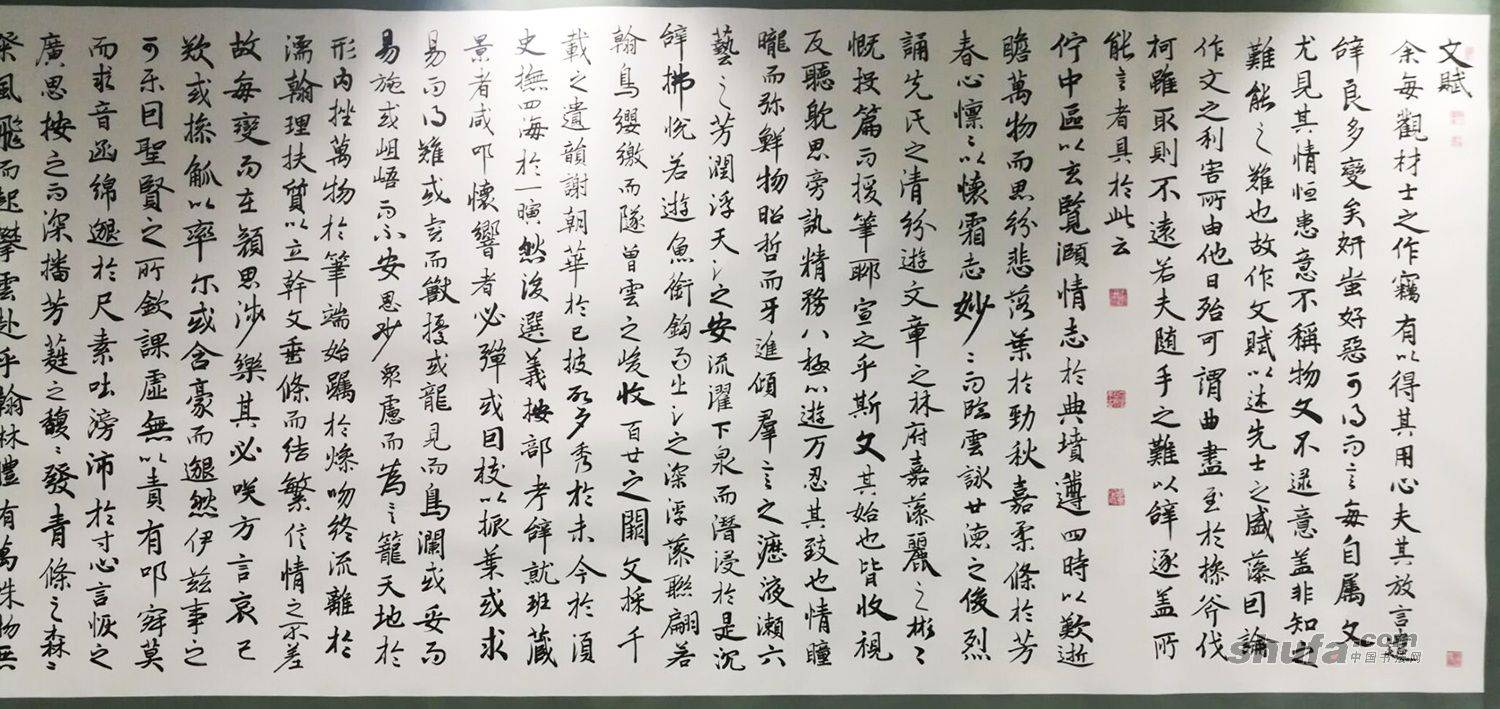 文賦
余每觀材士之作竊有以得其用心夫其放言遣
辝良多變矣妍蚩好惡可得而言每自属文
尤見其情恒患意不稱物文不逮意盖非知之
難能之難也故作文賦以述先士之盛藻因論
作文之利害所由他日殆可謂曲盡至於操斧伐
柯雖取則不遠若夫随手之難以辝逐盖所
能言者具於此云
佇中區以玄覽頤情志於典墳遵四時以歎逝
瞻萬物而思紛悲落葉於勁秋嘉柔條於芳
春心懍〻以懷霜志妙〻而臨雲詠世德之俊烈
誦先民之清紛遊文章之林府嘉藻麗之彬〻
慨投篇而援筆聊宣之乎斯文其始也皆收視
反聽耽思旁訊精務八極心遊万忍其致也情瞳
曨而弥鮮物昭晢而牙進傾羣言之瀝液漱六
藝之芳潤浮天之安流濯下泉而潛浸於是沉
辝拂悅若遊魚銜鉤而出之深浮藻聯翩若
翰鳥纓繳而墜曾雲之峻收百世之闕文採千
載之遺韻謝朝華於已披啟夕秀於未今於須
史撫四海於一瞬然後選義按部考辝就班藏
景者咸叩懷響者必彈或因枝以振葉或求
易而得難或虎而獸擾或龍見而鳥瀾或妥而
易施或岨峿而不安思妙衆慮而為言籠天地於
形内挫萬物於筆端始躅於燥吻終流離於
濡翰理扶質以立幹文垂條而結繁信情之不差
故每變而在顔思涉樂其必笑方言哀已
歎或操觚以率尔或含豪而邈然伊茲事之
可樂固聖賢之所欽課虛無以責有叩寂莫
而求音函綿邈於尺素吐滂沛於寸心言恢之
廣思按之而深播芳蕤之馥〻發青條之森〻
粲風飛而起攀雲赴乎翰林體有萬殊物無
shufa.com
中国书法网